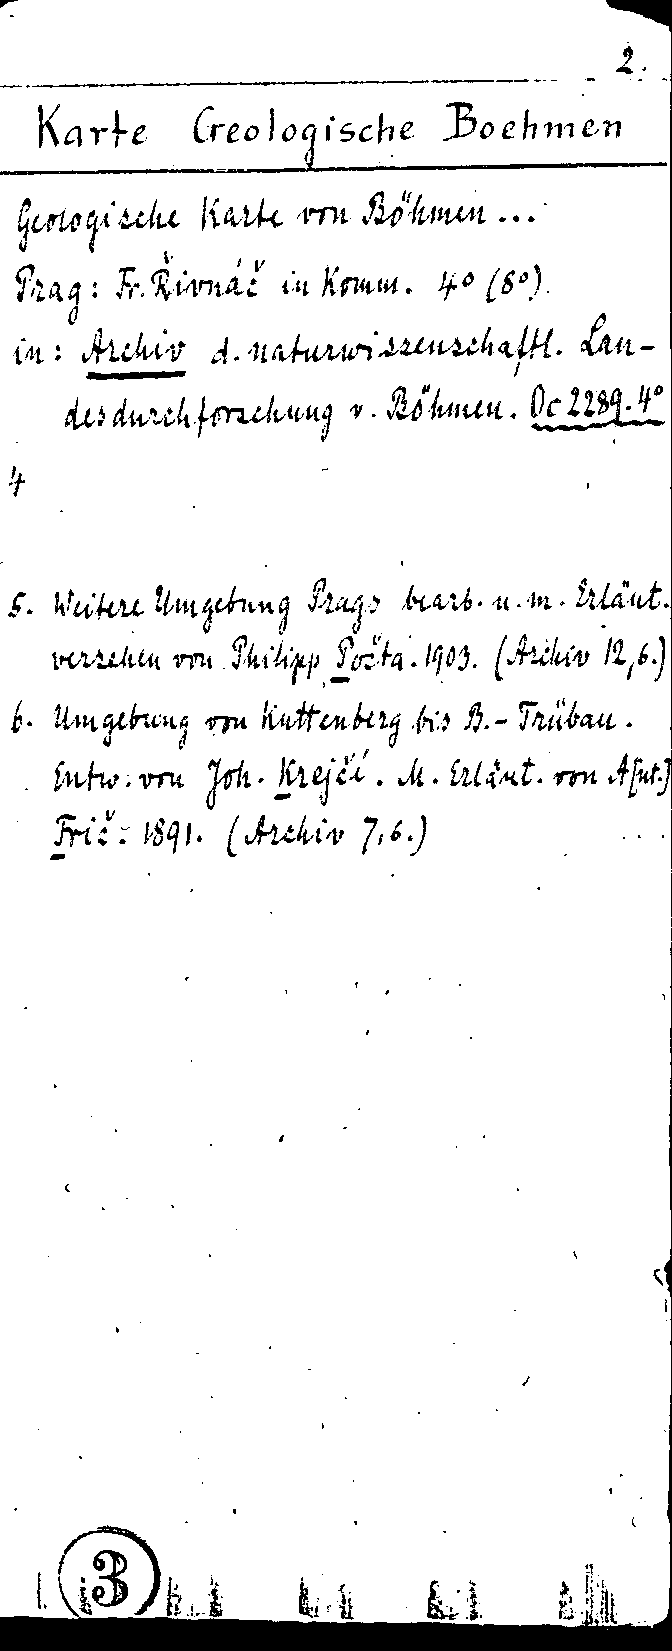 2.
Karte Geologische Boehmen
Geologische Karte von Böhmen ...
Prag: Fr. Řivnáč in Komm. 4° (8°).
in: Archiv d. naturwissenschaftl. Lan-
desdurchforschung v. Böhmen. Oc 2289.4°
4
5. Weitere Umgebung Prags bearb. u. m. Erläut.
versehen von Philipp Počta. 1903. (Archiv 12,6.)
6. Umgebung von Kuttenberg bis B.-Trübau.
Entw. von Joh. Krejčí. M. Erläut. von A[nt.]
Frič. 1891. (Archiv 7,6.)
3